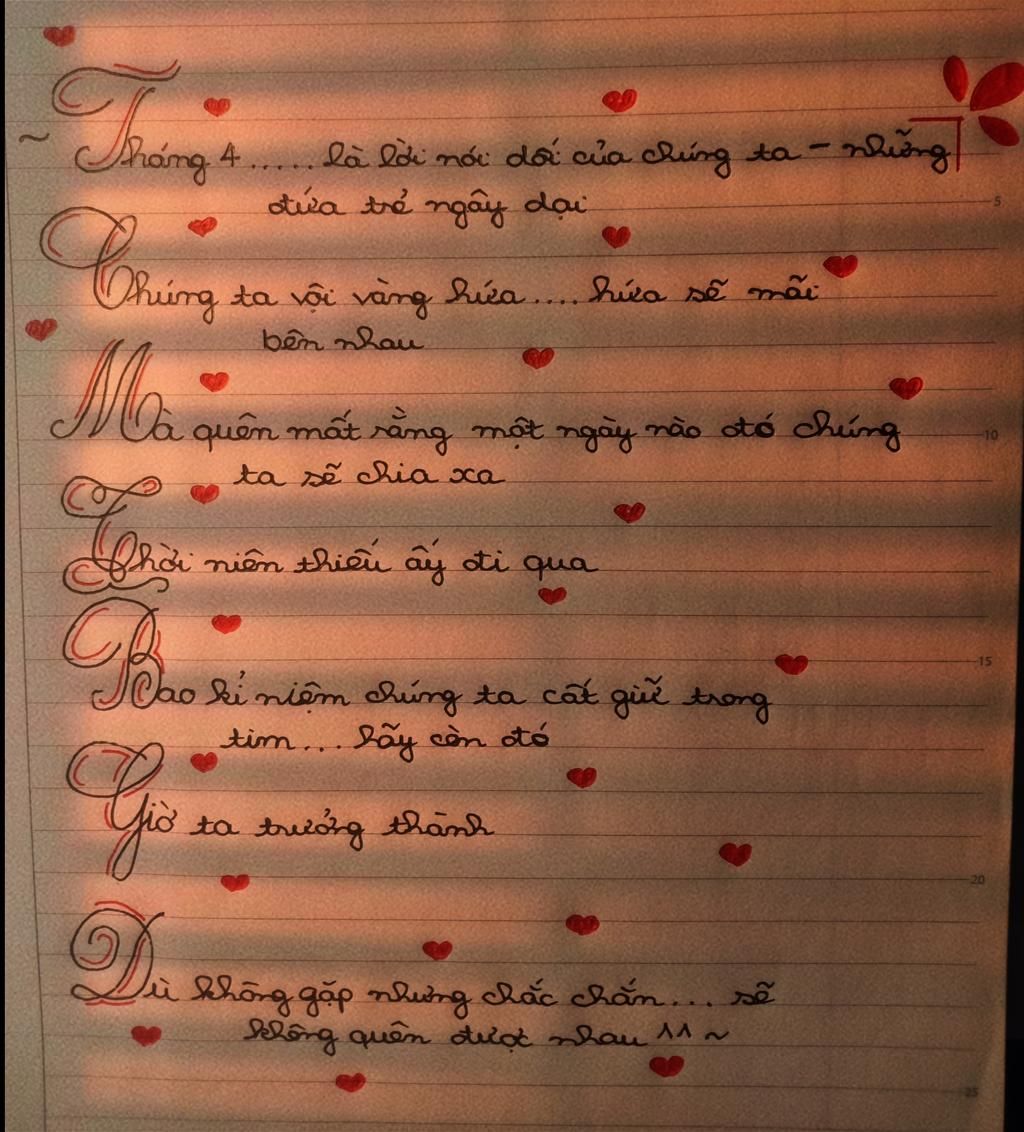 ~ Tháng 4 ..... là lời nói dối của chúng ta - những
đứa trẻ ngây dại
5
Chúng ta vội vàng hứa .... hứa sẽ mãi
bên nhau
Mà quên mất rằng một ngày nào đó chúng
10
ta sẽ chia xa
Thời niên thiếu ấy đi qua
15
Bao kỉ niệm chúng ta cất giữ trong
tim ... hãy còn đó
Giờ ta trưởng thành
20
Dù không gặp nhưng chắc chắn ... sẽ
không quên được nhau ^^ ~
25